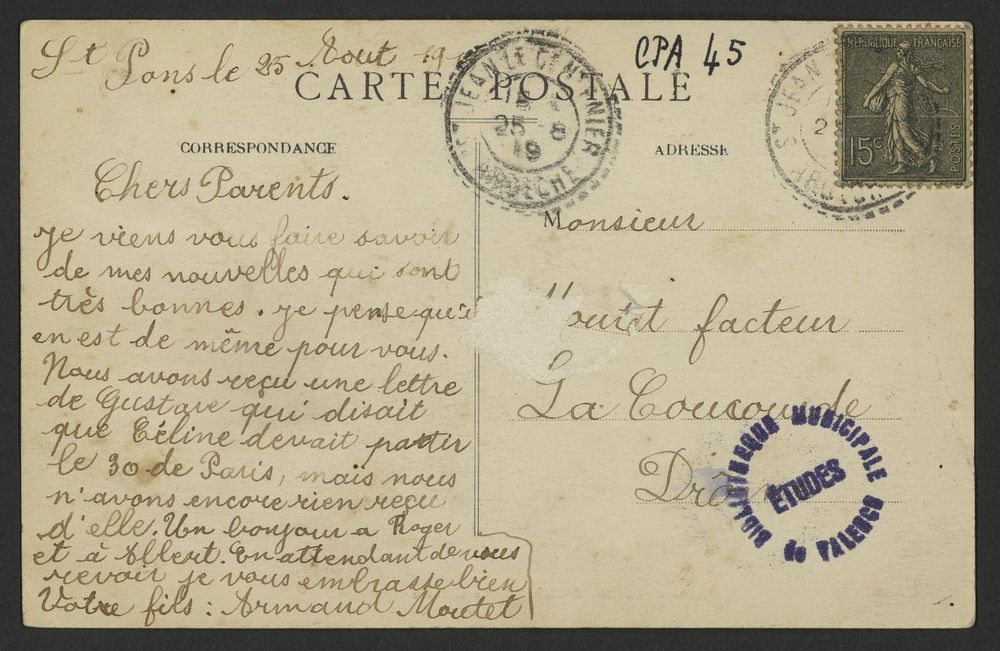 St Pons le 25 Aout 19
CPA 45
CARTE POSTALE
ST JEAN LE CENTENIER
25 8
19
ARDECHE
REPUBLIQUE FRANÇAISE
15c
POSTES
CORRESPONDANCE
Chers Parents.
Je viens vous faire savoir
de mes nouvelles qui sont
très bonnes. Je pense qu'il
en est de même pour vous.
Nous avons reçu une lettre
de Gustave qui disait
que Céline devait partir
le 30 de Paris, mais nous
n'avons encore rien reçu
d'elle. Un bonjour a Roger
et à Albert. En attendant de vous
revoir je vous embrasse bien
Votre fils : Armand Moutet
ADRESSE
Monsieur
facteur
La Coucourde
Drôme
BIBLIOTHEQUE MUNICIPALE
ÉTUDES
de VALENCE